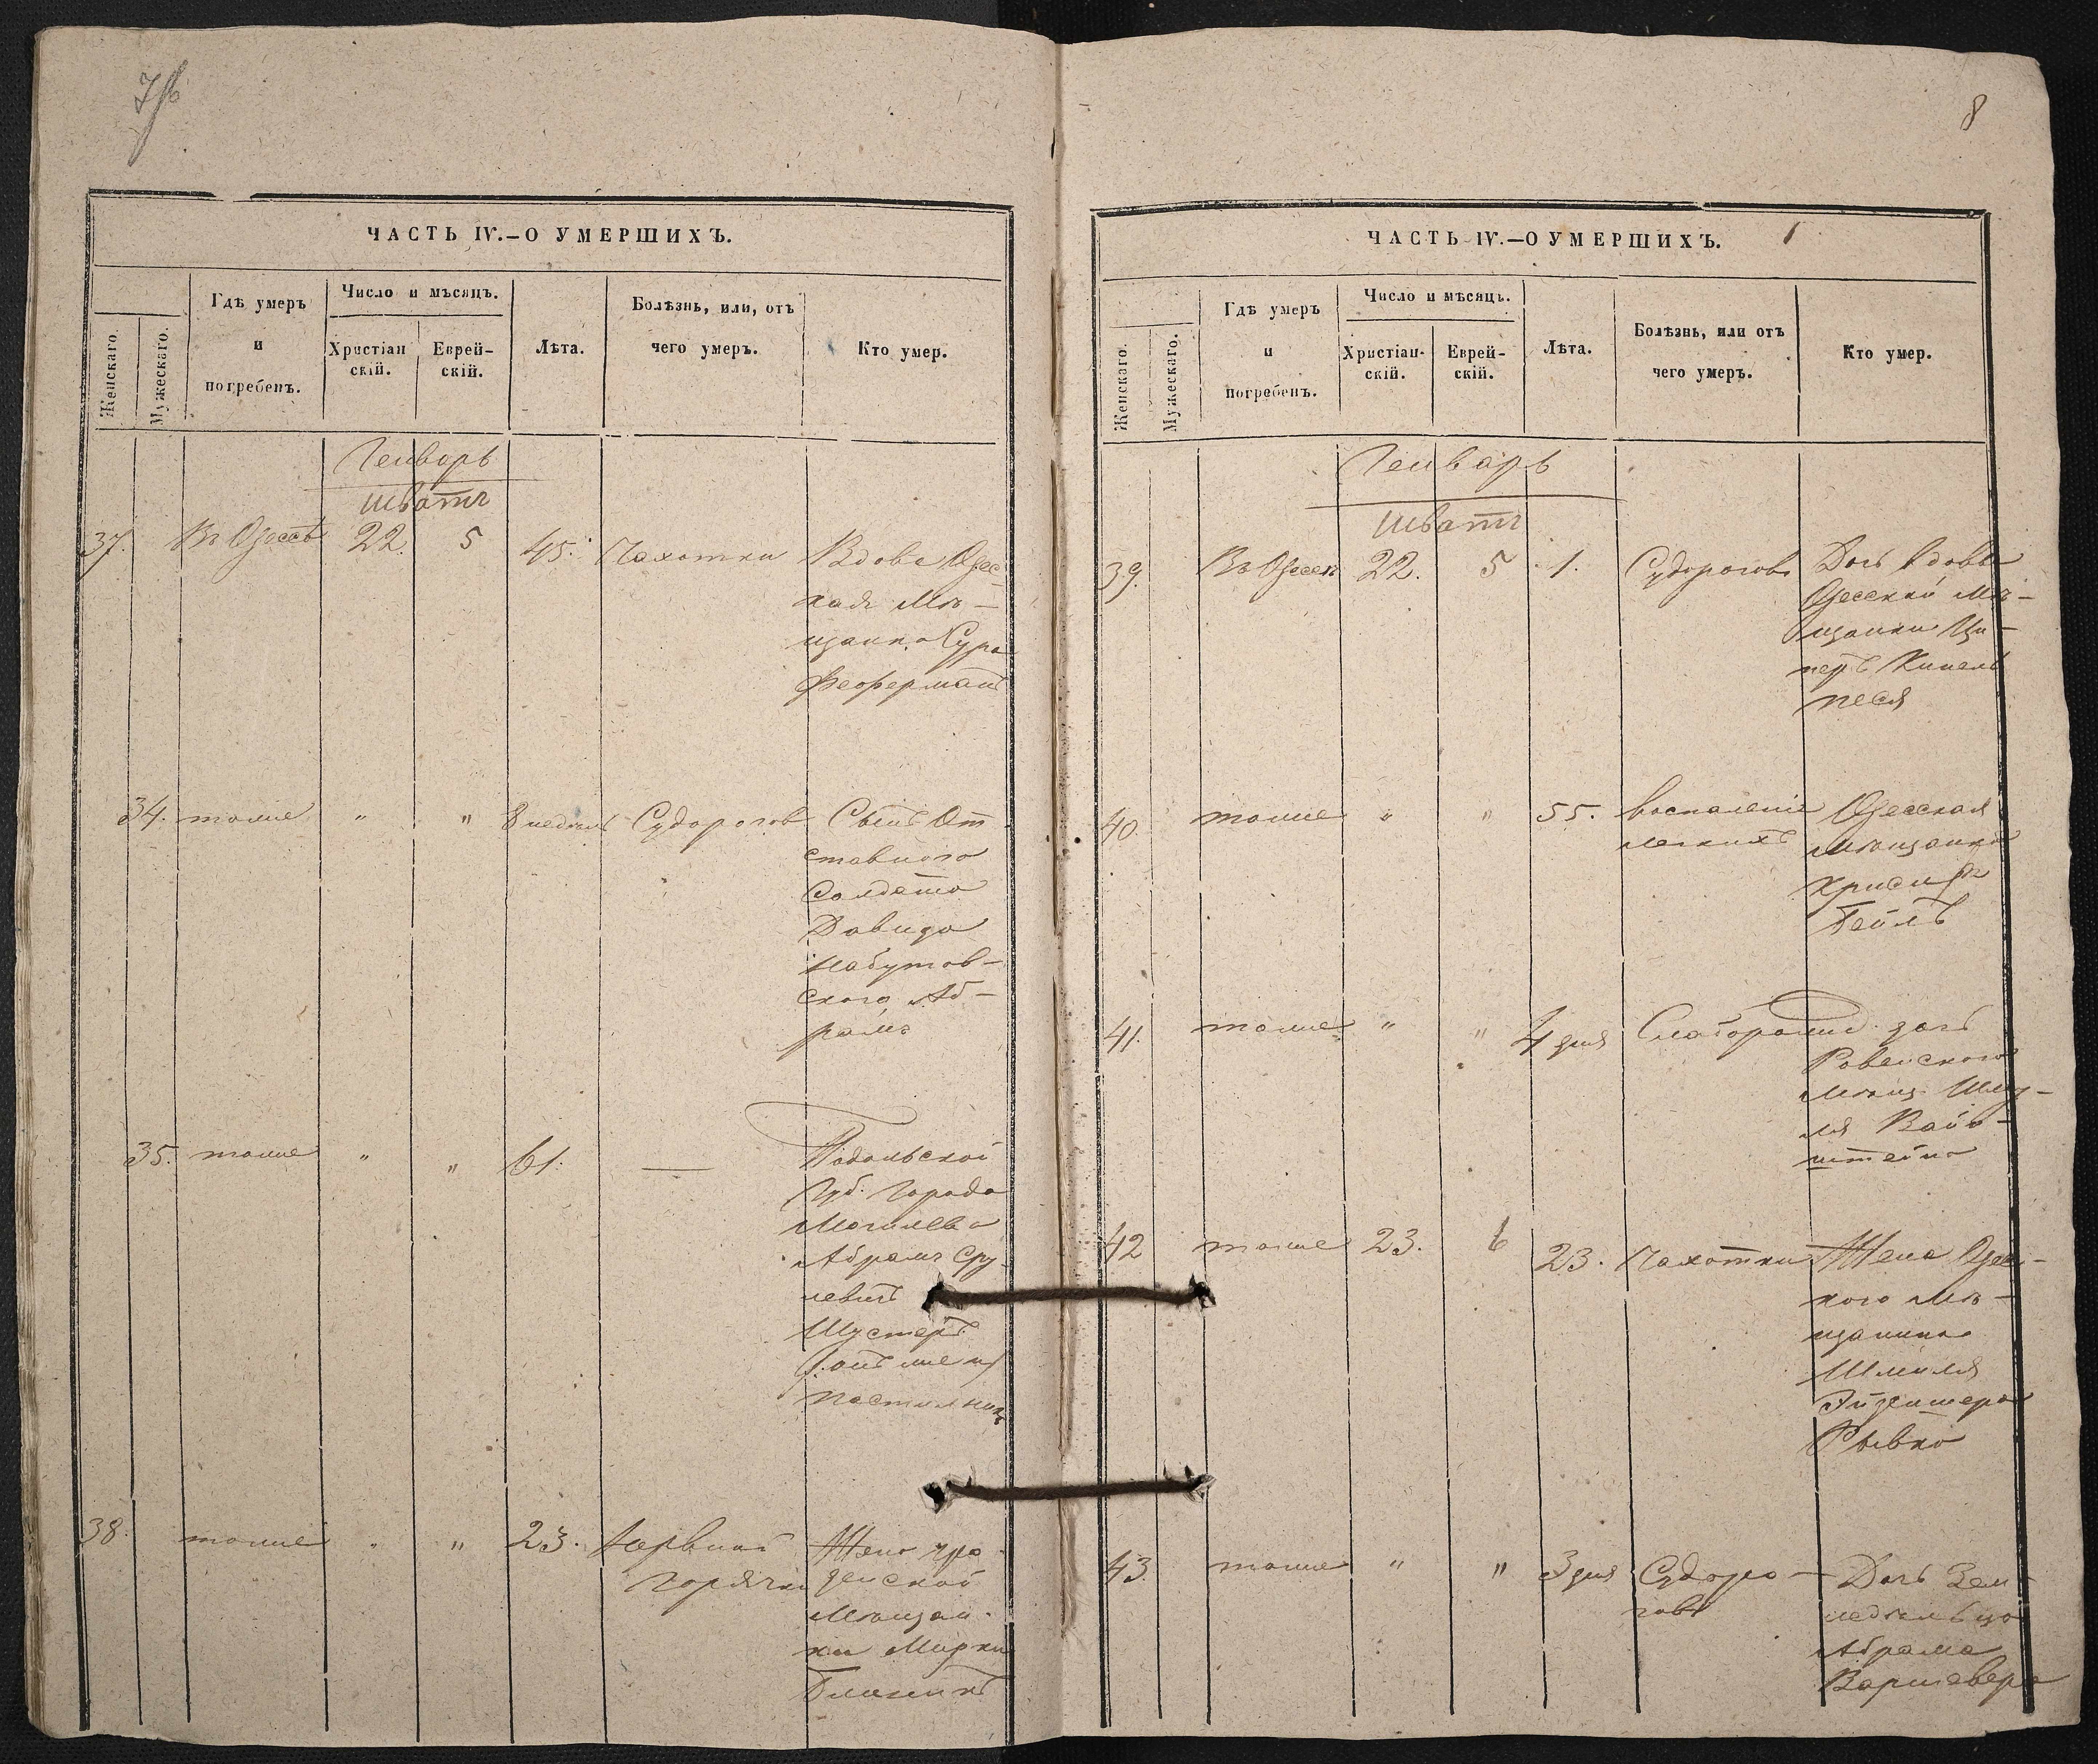 7/б
ЧАСТЬ IV.—О УМЕРШИХЪ.
Женскаго.
Мужескаго.
Гдѣ умеръ
и
погребенъ.
Число и мѣсяцъ.
Христіан
скій.
Еврей-
скій.
Лѣта.
Болѣзнь, или, отъ
чего умеръ.
Кто умер.
Генварь
шватъ
37. Въ Одессѣ 22. 5 45. Чахотки Вдова Одес-
кая Мѣ-
щанка Сура
Феферманъ
34. тоже " " 8 недѣль Судорогов Сынъ От
ставного
Солдата
Давида
Набутов-
ского Аб-
рамъ
35. тоже " " 61. — Подольской
Губ. Города
Могилева
Абрамъ Сру
левичъ
Шустеръ
38. тоже " " 23. Нервной Жена
горячки
Мѣщан-
ки Мирки
8
ЧАСТЬ IV.—О УМЕРШИХЪ.
Женскаго.
Мужескаго.
Гдѣ умеръ
и
погребенъ.
Число и мѣсяцъ.
Христіан-
скій.
Еврей-
скій.
Лѣта.
Болѣзнь, или отъ
чего умеръ.
Кто умер.
Генварь
шватъ
39. Въ Одессѣ 22. 5 1. Судорогов Дочь вдовы
Одесской Мѣ-
щанки Ци-
песя
40. тоже " " 55. воспаленіе Одесская
легкихъ Мѣщанка
Бейлъ
41. тоже " " 4 дня Слаборожд. дочь
Ровенского
Мѣщ. Шму-
ля Вайн-
штейна
42 тоже 23. 6 23. Чахотки Жена Одес-
кого Мѣ-
щанина
Шмиля
Рывка
43. тоже " " 3 дня Судоро- Дочь Зем
говъ ледѣльца
Абрама
Варшавера